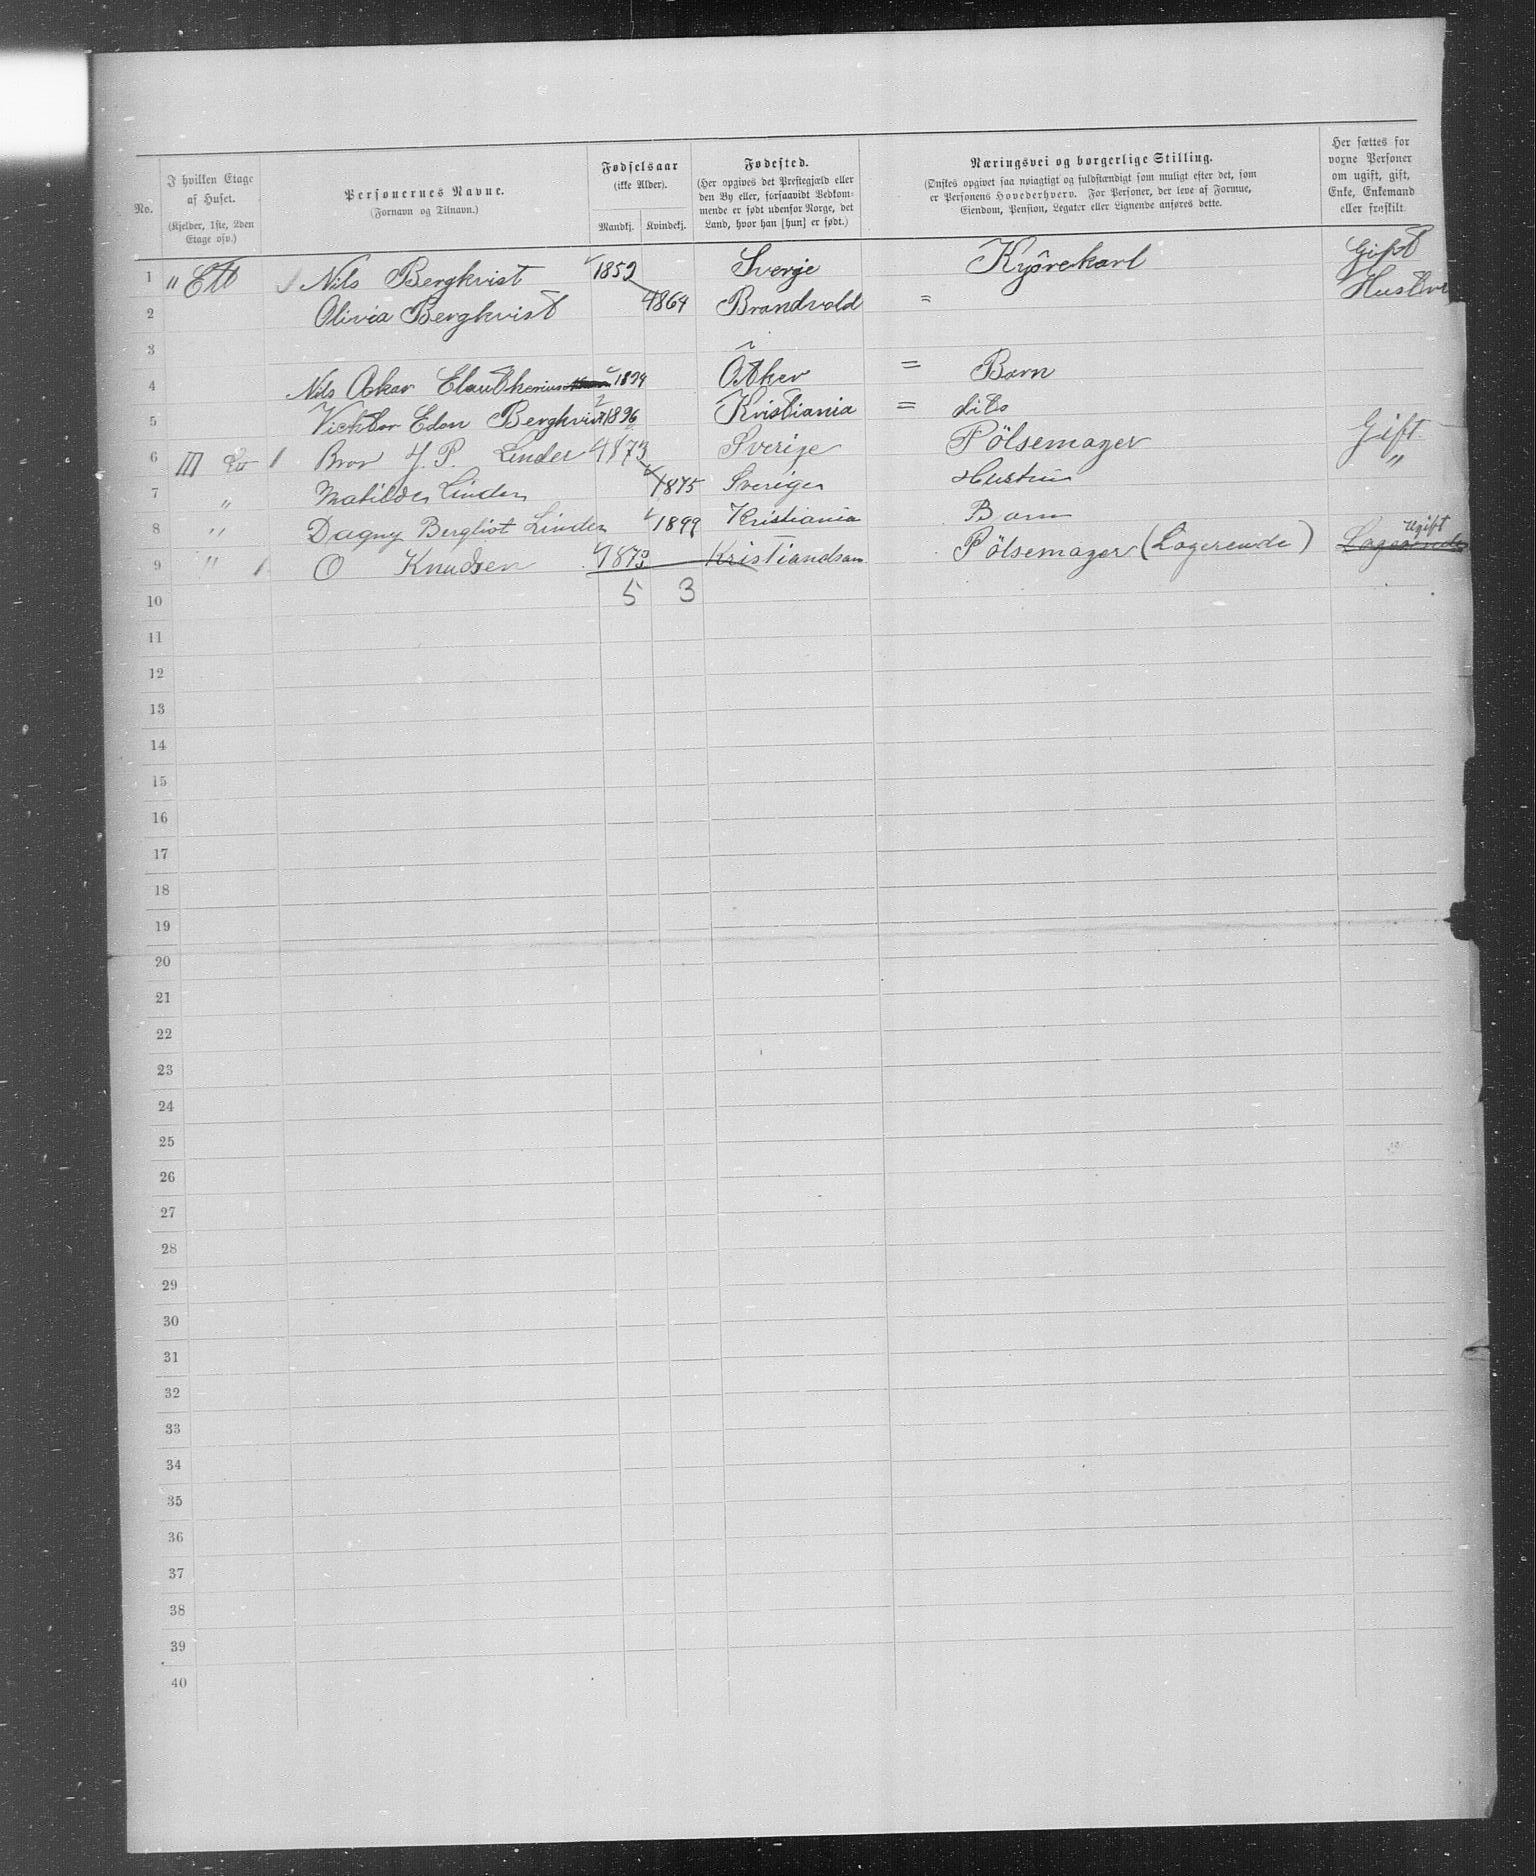 No.
I hvilken Etage af Huset. (Kjelder, 1ste, 2den Etage osv.)
Personernes Navne. (Fornavn og Tilnavn.)
Fødselsaar (ikke Alder). Mandkj. Kvindekj.
Fødested. (Her opgives det Prestegjæld eller den By eller, forsaavidt Vedkommende er født udenfor Norge, det Land, hvor han [hun] er født.)
Næringsvei og borgerlige Stilling. (Ønskes opgivet saa nøiagtigt og fuldstændigt som muligt efter det, som er Personens Hovederhverv. For Personer, der leve af Formue, Eiendom, Pension, Legater eller Lignende anføres dette.
Her sættes for voxne Personer om ugift, gift, Enke, Enkemand eller fraskilt
1 " Ett Nils Bergkvist 1852 Sverje Kyörekarl Gift
2 Olivia Bergkvist 1864 Brandvold = Hustru
3
4 Nils Oskar 1894 = Barn
5 Vicktor Edon Bergkvist 1896 Kristiania = dito
6 III Bror J. P. Linder 1873 Sverige Pölsemager Gift.
7 " Matilde Linder 1875 Sverige Hustru "
8 " Dagny Bergliot Linder 1899 Kristiania Barn
9 " O Knudsen 1873 Kristiandsan Pölsemager (Logerende) Ugift
10 5 3
11
12
13
14
15
16
17
18
19
20
21
22
23
24
25
26
27
28
29
30
31
32
33
34
35
36
37
38
39
40